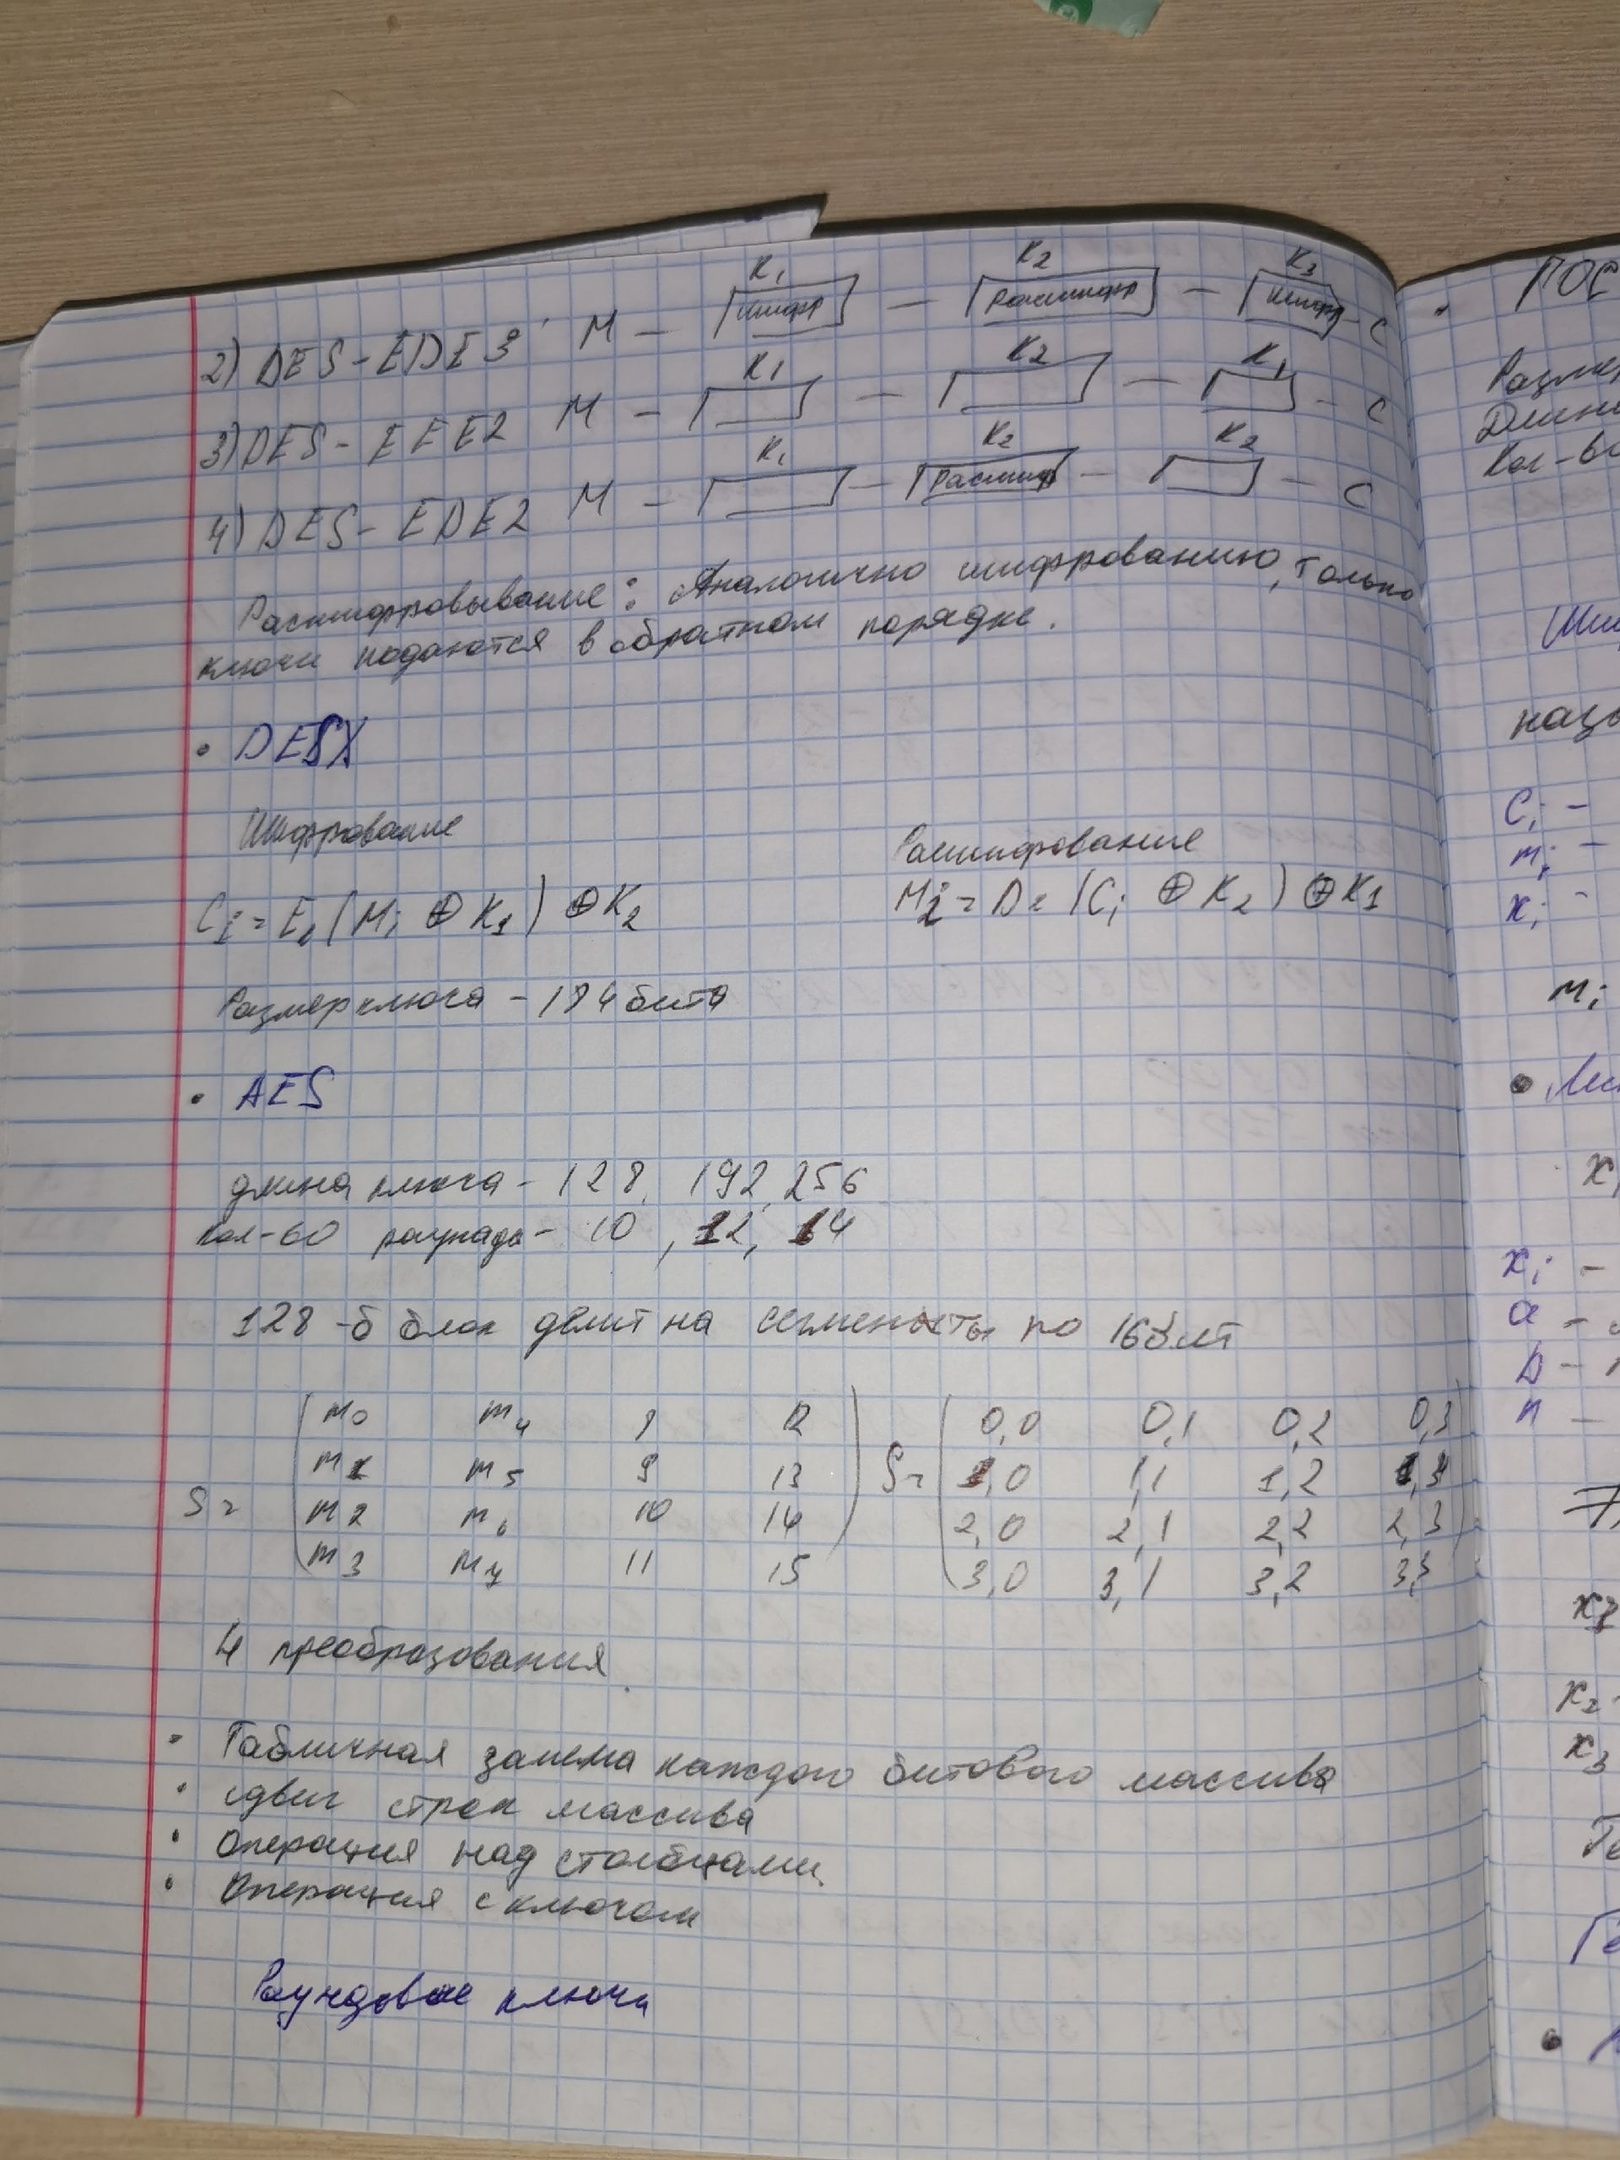 K1 K2 K3
2) DES-EDE3 M - Шифр - Расшифр - Шифр - C
K1 K2 K1
3) DES-EEE2 M - - - - C
K1 K2 K2
4) DES-EDE2 M - - Расшиф - - C
Расшифровывание: Аналогично шифрованию, только
ключи подаются в обратном порядке.
• DESX
Шифрование Расшифрование
Ci = E (Mi ⊕ K1) ⊕ K2 Mi = D = (Ci ⊕ K2) ⊕ K1
Размер ключа - 184 бита
• AES
длина ключа - 128, 192, 256
Кол-во раунда - 10, 12, 14
128-б блок делит на сегменты по 16 бит
S = ( m0 m4 8 12 ) S = ( 0,0 0,1 0,2 0,3 )
m1 m5 9 13 1,0 1,1 1,2 1,3
m2 m6 10 14 2,0 2,1 2,2 2,3
m3 m7 11 15 3,0 3,1 3,2 3,3
4 преобразования
• Табличная замена каждого битового массива
• сдвиг строк массива
• Операция над столбцами
• Операция с ключом
Раундовые ключи
• ГОС
Разме
Длин
Кол-во
Ши
назы
Ci -
mi -
xi -
mi
•
x
xi -
a -
b -
n -
x2 -
x3